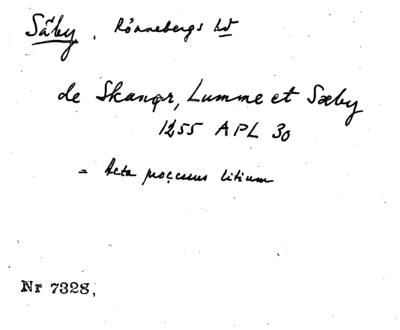 Säby, Rönnebergs hd
de Skanør, Lumme et Sæby
1255 APL 30
= Acta processus litium
Nr 7328,